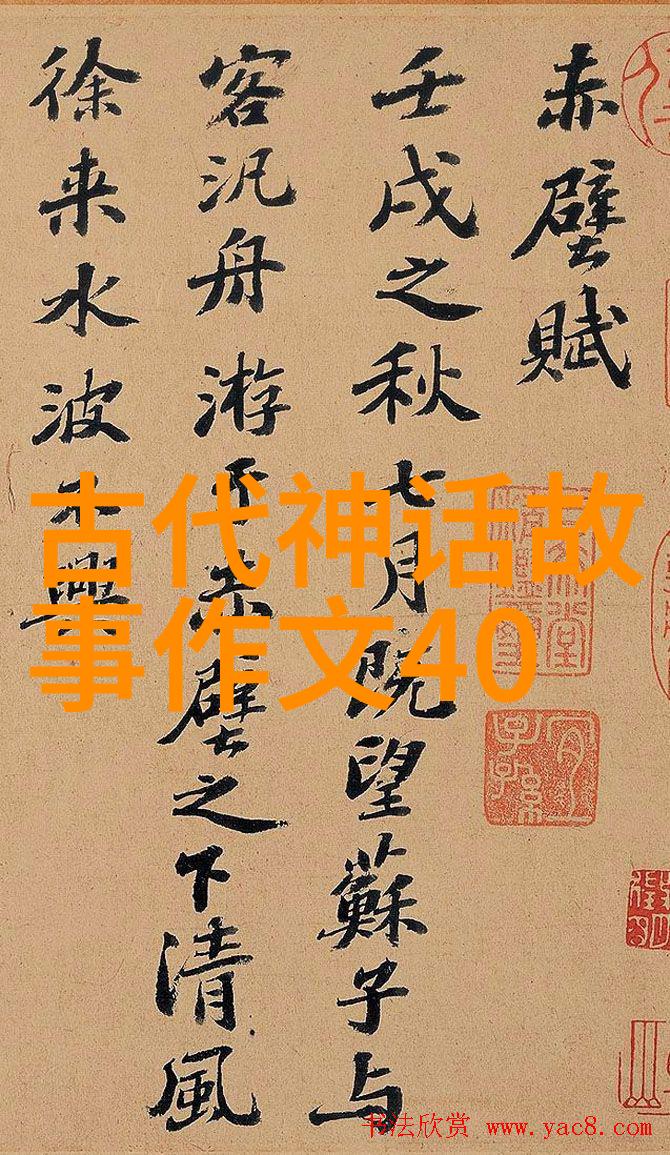 赤壁賦
壬戌之秋七月既望蘇子与
客汎舟游于赤壁之下清風
徐来水波不興
古代神话故
事作文40
书法欣赏 www.yac8.com